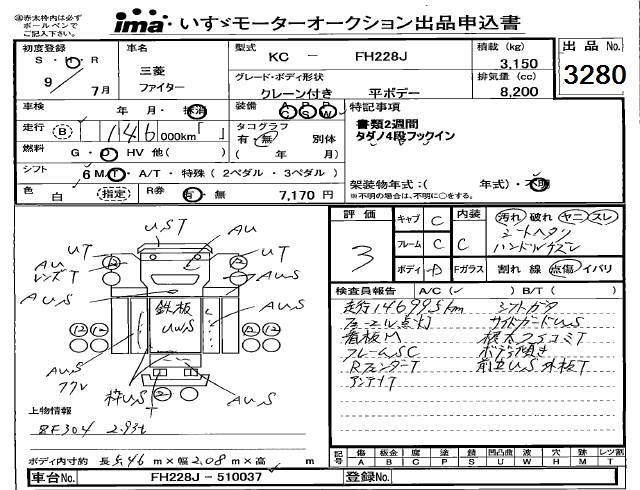 ◎赤太枠内は必ず
ボールペンで
ご記入下さい。
ima いすゞモーターオークション出品申込書
初度登録 S・H・R 9/7月
車名 三菱 ファイター
型式 KC － FH228J
積載 (kg) 3,150
出品No. 3280
グレード・ボディ形状 クレーン付き 平ボデー
排気量 (cc) 8,200
車検 年・月・抹消
装備 AC PS PW
特記事項
書類2週間
タダノ4段フックイン
走行 (B) 146,000km「 」
タコグラフ 有・無 別体
( 年 月)
燃料 G・D HV 他( )
シフト 6 M/T・A/T・特殊 (2ペダル・3ペダル)
架装物年式:( 年式)・不明
※不明の場合は、不明に○をする。
色 白 (指定)
R券 有・無 7,170円
評価 3
キャブ C 内装 C
フレーム C
ボディ D Fガラス
汚れ 破れ ヤニ スレ
シートヘタリ
ハンドルスレ
割れ 線 点傷 イバリ
検査員報告 A/C(✓) B/T( )
走行146995km シフトガタ
フューエル点灯 サイドガードUS
看板M 根太フックミT
フレームSC ボディ傾き
RフェンダーT 前立US 外板T
アンテナT
UST
UT AU UT
AU
レンズT
AUS AUS
鉄板
UWS
AUS
AUS
フワV
枠US
T
AUS
12 12 12 12
上物情報
ZF304 2.93t
ボディ内寸約 長5.46m×幅2.08m×高 m
記号 傷 板金 腐 塗 錆 凹凸曲 波 穴 跡 レツ割
A B C P S U W H M T
車台No. FH228J－510037
登録No.